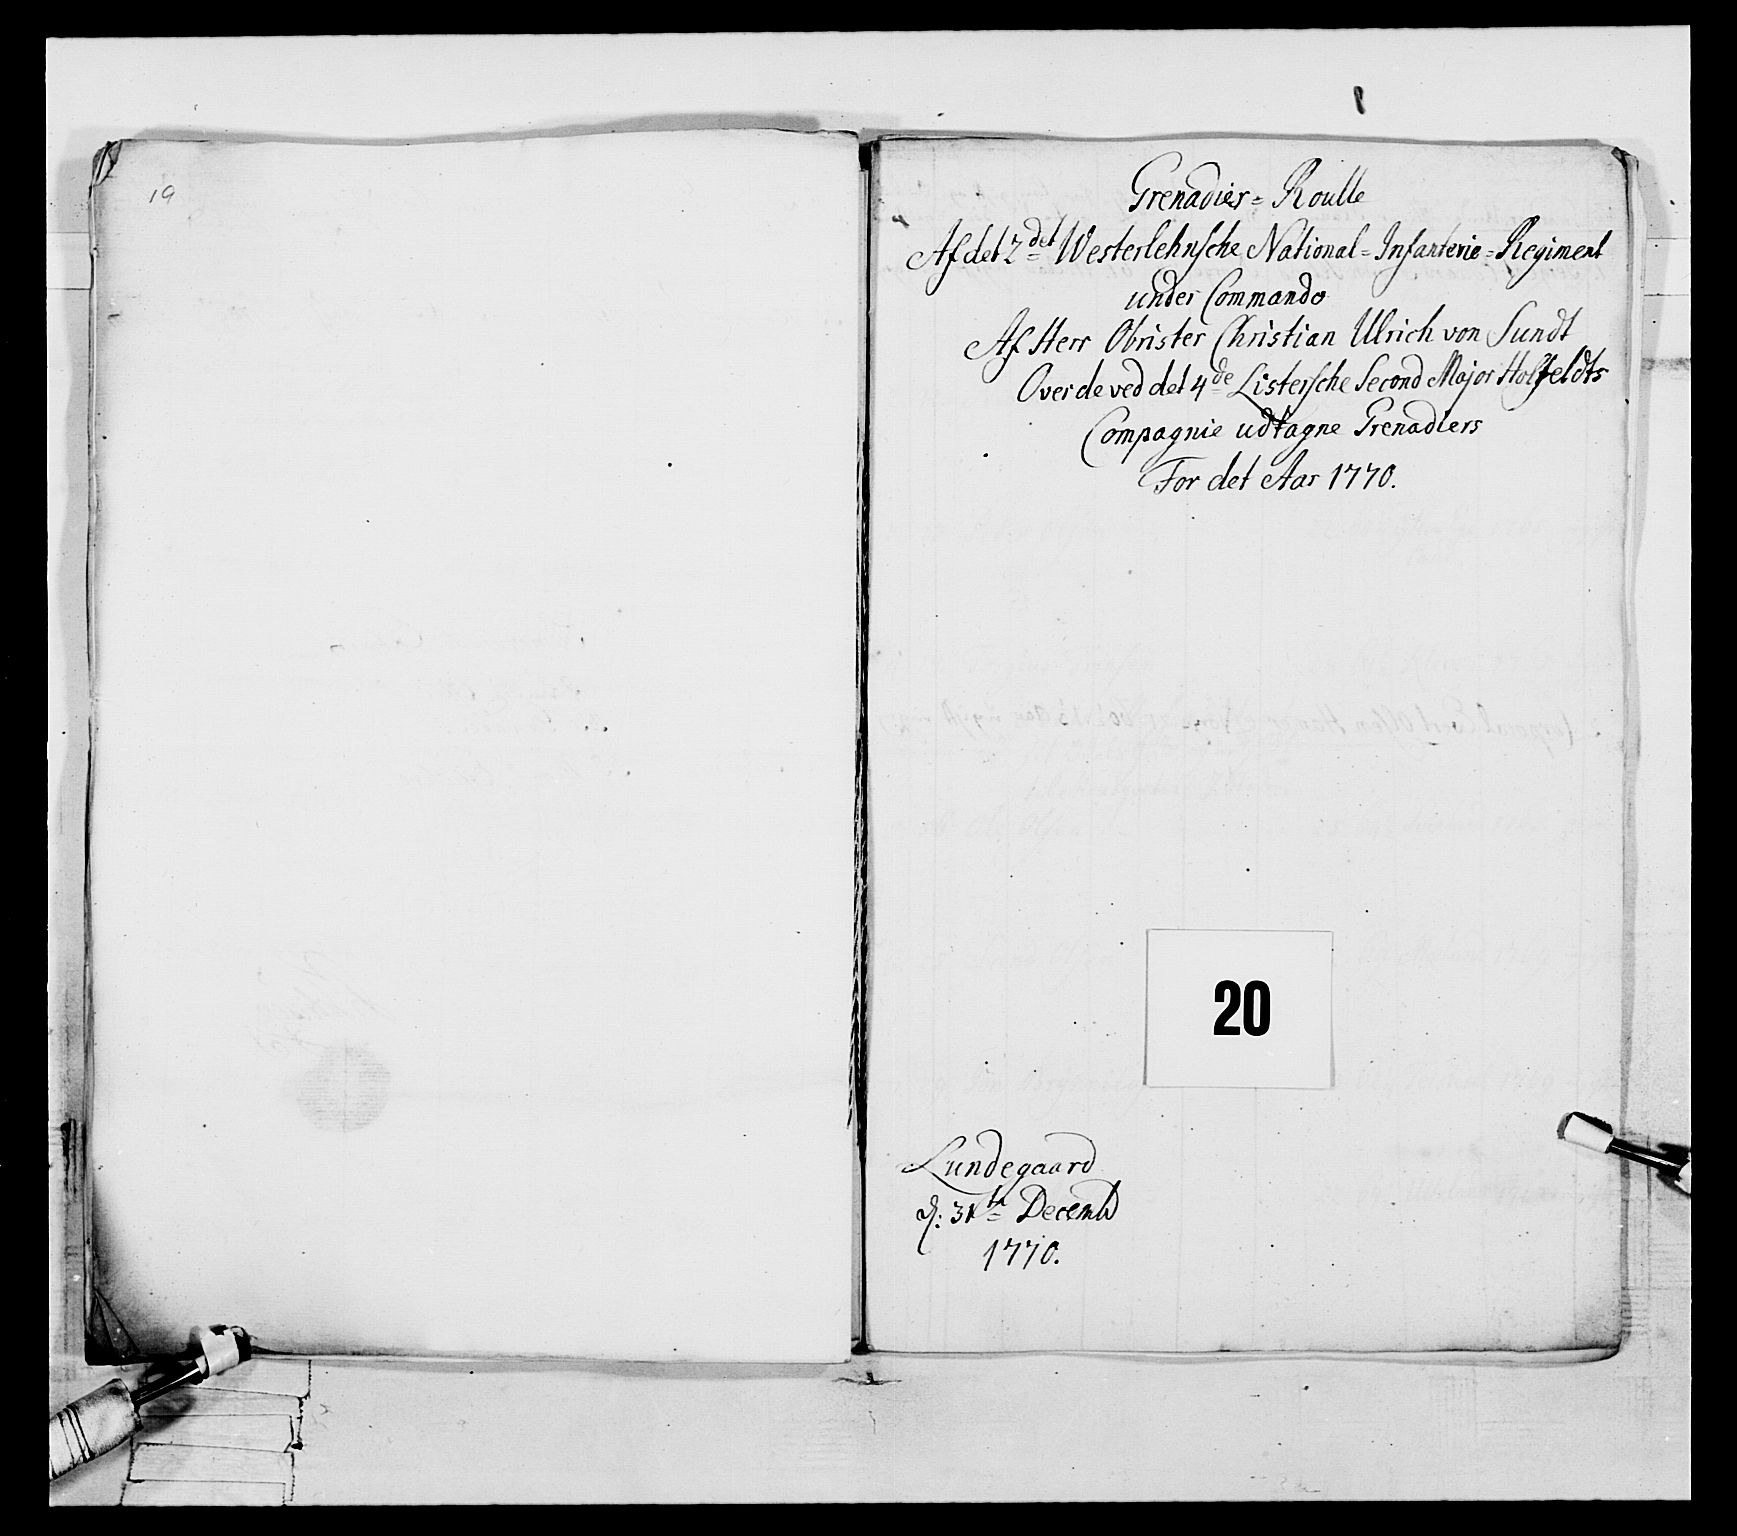 19
Grenadier= Roulle
Af det 2det Westerlehnsche National=Infanterie=Regiment
under Commando
Af Herr Obrister Christian Ulrich von Sundt
Over de ved det 4de Listersche Second Major Holfeldts
Compagnie udtagne Grenadiers
For det Aar 1770.
20
Lundegaard
d: 31te Decemb
1770.